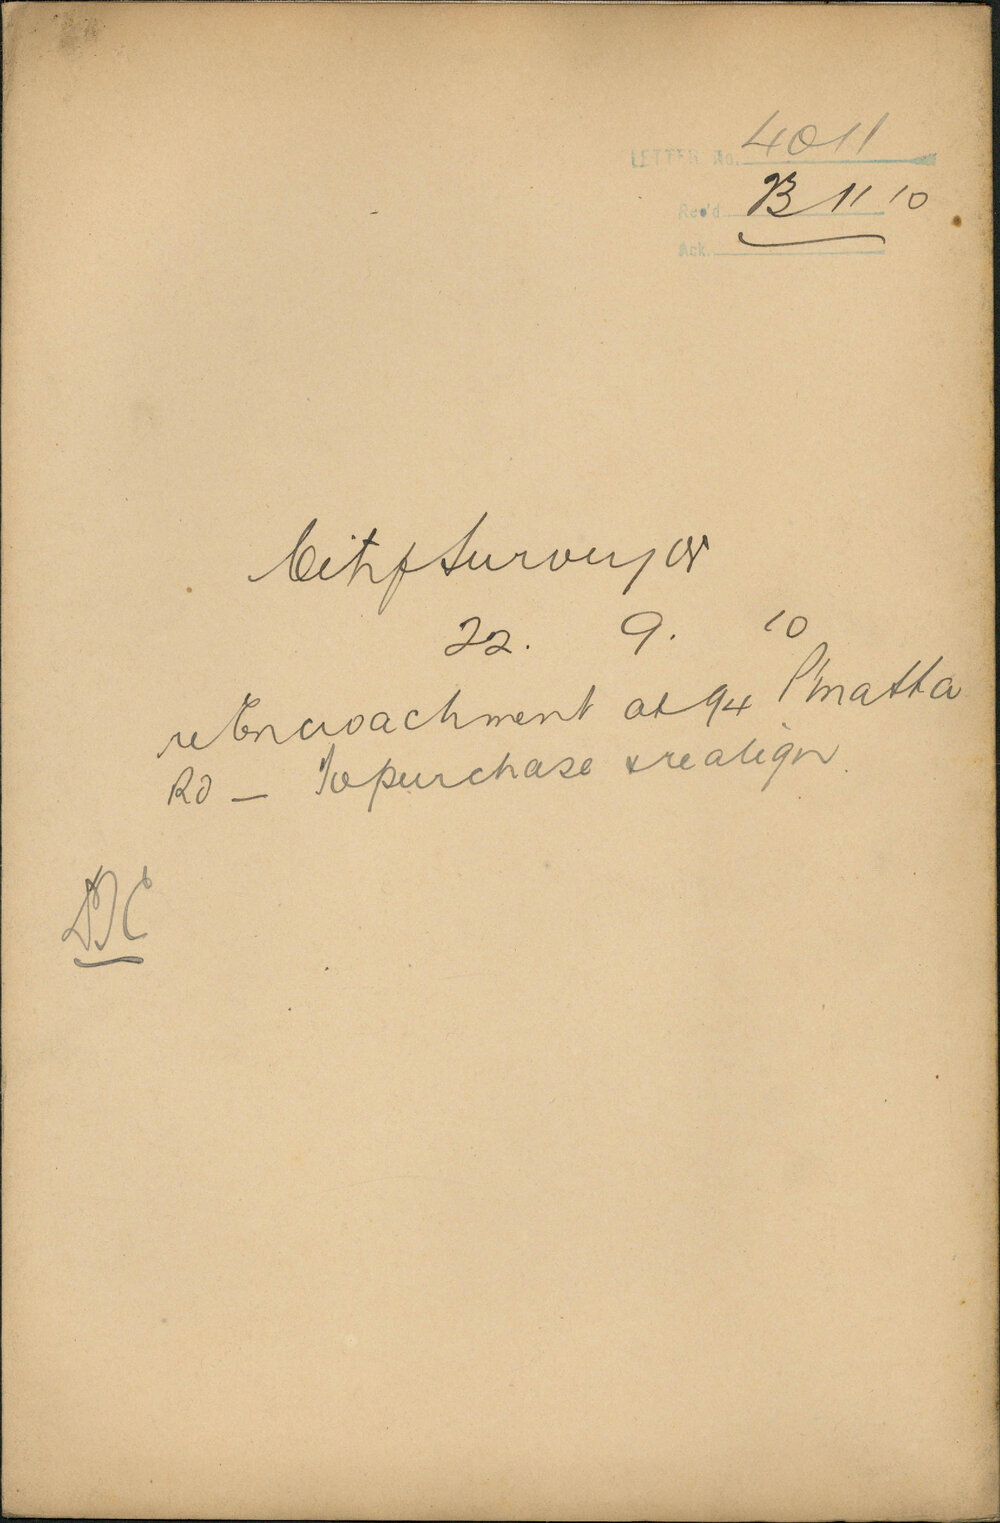 LETTER No. 4011
Rec'd B 11 10
Ack.
City Surveyor
22. 9. 10
re Encroachment at 94 P'matta
Rd — To purchase & realign